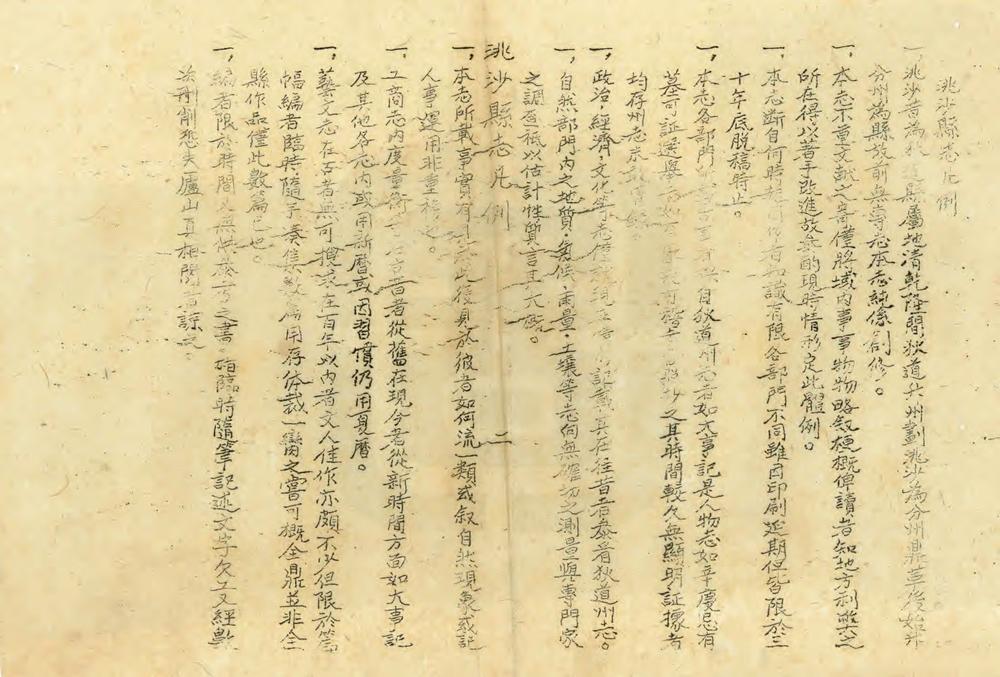 洮沙縣志凡例
一、洮沙昔為狄道縣屬地清乾隆間狄道升州劃洮沙為分州鼎革後始升
分州為縣故前無專志本志純係創修。
一、本志不重文献之竒僅將域内事事物物略叙梗概俾讀者知地方利弊之
所在得以著手改進故參酌現時情形定此體例。
一、本志断自何時起 者知識有限各部門不同雖因印刷延期但皆限於三
十年底脱稿時止。
一、本志各部門 自狄道州志者如大事記是人物志如辛慶忌有
墓可証選舉 洮沙之其時間較久無顯明証據者
均存州志
一、政治、經濟、文化等志僅就現在 記載其在往昔者泰看狄道州志。
一、自然部門内之地質、氣候、雨量、土壤等志向無確切之測量與專門家
之調查祇以估計性質言其大概。
洮沙縣志凡例 二
一、本志所載事實有 此後見於彼者如何流一類或叙自然現象或記
人事運用非重複也。
一、工商志内度量衡 昔者從舊在現今者從新時間方面如大事記
及其他各志内或用新曆或因習慣仍用夏曆。
一、藝文志在古者無可搜求在百年以内者文人佳作亦頗不少但限於篇
幅編者臨時隨手湊集數篇用存体裁一臠之嘗可概全鼎並非全
縣作品僅此數篇已也。
一、編者限於時間又無供參考之書。祇臨時隨筆記述文字欠工又經數
次刪削恐失廬山真相閱者諒之。